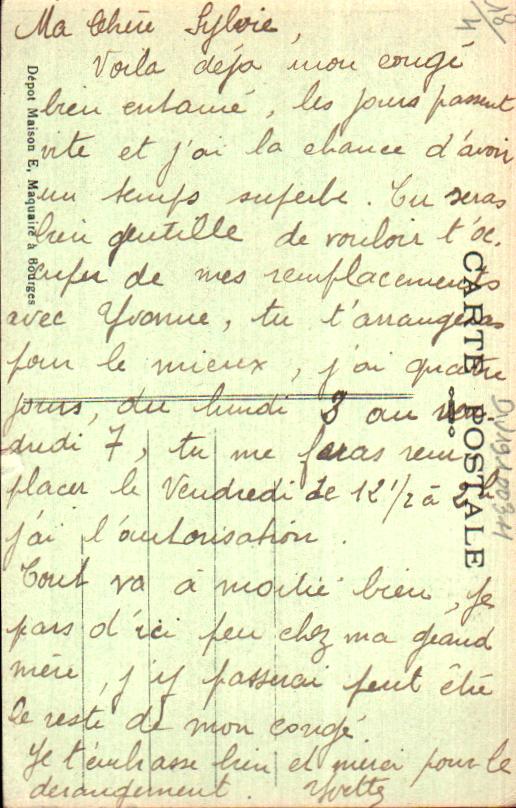 Ma Chère Sylvie,
Voila déja mon congé
bien entamé, les jours passent
vite et j'ai la chance d'avoir
un temps superbe. Tu seras
bien gentille de vouloir t'oc.
cuper de mes remplacements
avec Yvonne, tu t'arrangeras
pour le mieux, j'ai quatre
jours, du lundi 3 au ven
dredi 7, tu me feras rem
placer le Vendredi de 12 1/2 à
j'ai l'autorisation.
Tout va à moitié bien, je
pars d'ici peu chez ma grand
mère, j'y passerai peut être
le reste de mon congé.
Je t'embrasse bien et merci pour le
derangement. Yvette
Dépot Maison E. Maquaire à Bourges
CARTE POSTALE
18/4